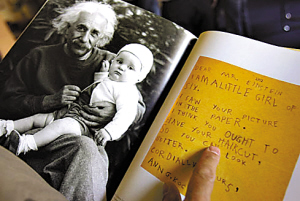 DEAR MR. EINSTEIN
I AM A LITTLE GIRL OF
SIX.
I SAW YOUR PICTURE
IN THE PAPER.
I THINK YOU OUGHT TO
HAVE YOUR HAIRCUT,
SO YOU CAN LOOK
BETTER.
CORDIALLY YOURS,
ANN G.